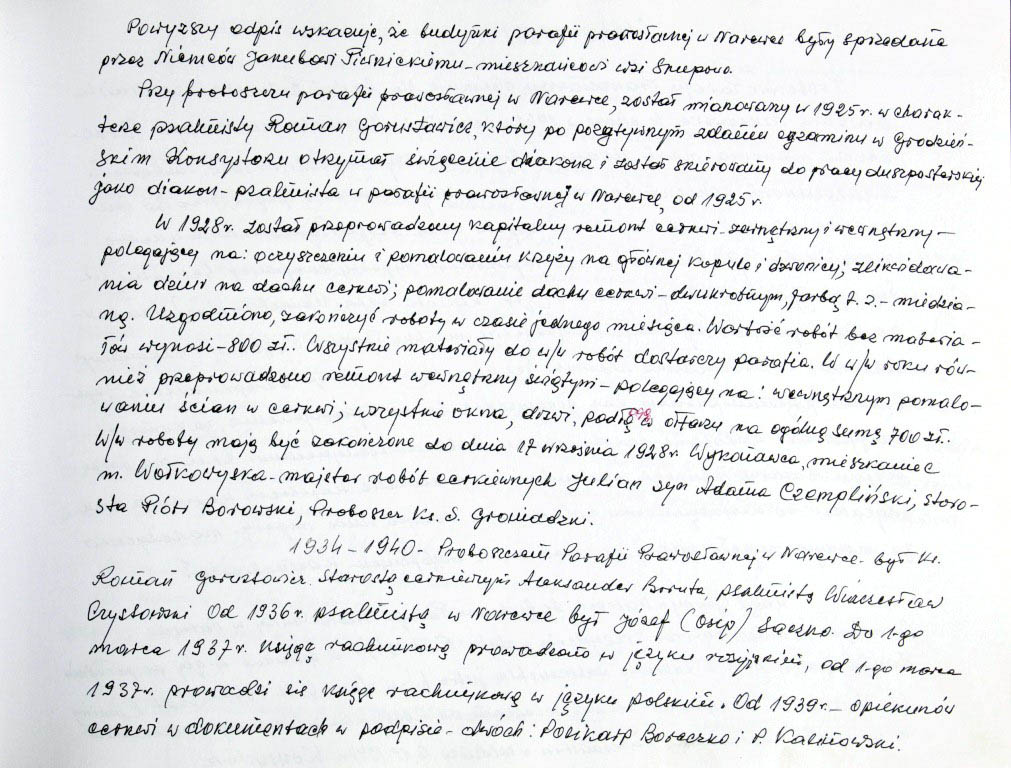 Powyższy odpis wskazuje, że budynki parafii prawosławnej w Narewce były sprzedane
przez Niemców Jakubowi Piwnickiemu - mieszkańcowi wsi Skupowo.
Przy proboszczu parafii prawosławnej w Narewce, został mianowany w 1925 r. w charak-
terze psalmisty Roman Gorustowicz, który po pozytywnym zdaniu egzaminu w Grodzień-
skim Konsystoku otrzymał święcenie diakona i został skierowany do pracy duszpasterskiej
jako diakon - psalmista w parafii prawosławnej w Narewce, od 1925 r.
W 1928 r. został przeprowadzony kapitalny remont cerkwi - zewnętrzny i wewnętrzny -
polegający na: oczyszczeniu i pomalowaniu krzyży na głównej kopule i dzwonicy; zlikwidowa-
nia dziur na dachu cerkwi; pomalowanie dachu cerkwi - dwukrotnym, farbą t. z. - miedzia-
ną. Uzgodniono, zakończyć roboty w czasie jednego miesiąca. Wartość robót bez materia-
łów wynosi - 800 zł.. Wszystkie materiały do w/w robót dostarczy parafia. W w/w roku rów-
nież przeprowadzono remont wewnętrzny świątyni - polegający na: wewnętrznym pomalo-
waniu ścian w cerkwi; wszystkie okna, drzwi, w ołtarzu na ogólną sumę 700 zł.
W/w roboty mają być zakończone do dnia 17 września 1928 r. Wykonawca, mieszkaniec
m. Wołkowyska - majster robót cerkiewnych Julian syn Adama Czempliński, staro-
sta Piotr Borowski, Proboszcz Ks. S. Gromadzki.
1934 - 1940 - Proboszczem Parafii Prawosławnej w Narewce - był Ks.
Roman Gorustowicz. Starostą cerkiewnym Aleksander Boruta, psalmistą Wiaczesław
Czystowski Od 1936 r. psalmistą w Narewce był Józef (Osip) Saczko. Do 1-go
marca 1937 r. księgę rachunkową prowadzono w języku rosyjskim, od 1-go marca
1937 r. prowadzi się księgę rachunkową w języku polskim. Od 1939 r. - opiekunów
cerkwi w dokumentach w podpisie - dwóch: Polikarp Boreczko i P. Kalinowski.